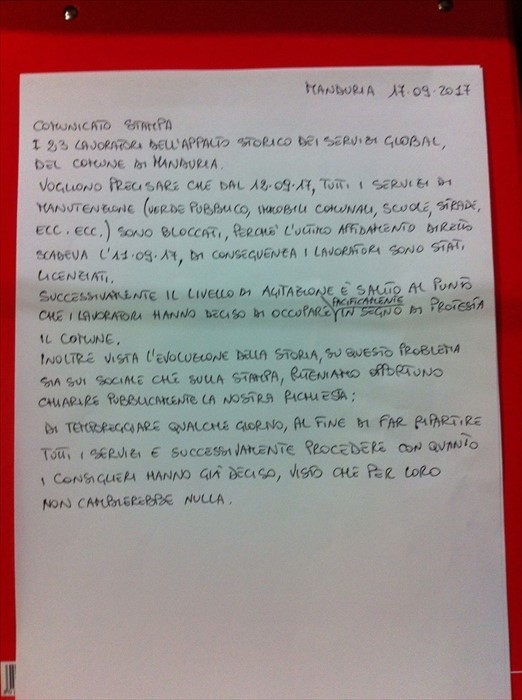 MANDURIA 17.09.2017
COMUNICATO STAMPA
I 23 LAVORATORI DELL'APPALTO STORICO DEI SERVIZI GLOBAL,
DEL COMUNE DI MANDURIA.
VOGLIONO PRECISARE CHE DAL 12.09.17, TUTTI I SERVIZI DI
MANUTENZIONE (VERDE PUBBLICO, IMMOBILI COMUNALI, SCUOLE, STRADE,
ECC. ECC.) SONO BLOCCATI, PERCHÈ L'ULTIMO AFFIDAMENTO DIRETTO
SCADEVA L'11.09.17, DI CONSEGUENZA I LAVORATORI SONO STATI
LICENZIATI.
SUCCESSIVAMENTE IL LIVELLO DI AGITAZIONE È SALITO AL PUNTO
CHE I LAVORATORI HANNO DECISO DI OCCUPARE PACIFICAMENTE IN SEGNO DI PROTESTA
IL COMUNE.
INOLTRE VISTA L'EVOLUZIONE DELLA STORIA, SU QUESTO PROBLEMA
SIA SUI SOCIALE CHE SULLA STAMPA, RITENIAMO OPPORTUNO
CHIARIRE PUBBLICAMENTE LA NOSTRA RICHIESTA:
DI TEMPOREGGIARE QUALCHE GIORNO, AL FINE DI FAR RIPARTIRE
TUTTI I SERVIZI E SUCCESSIVAMENTE PROCEDERE CON QUANTO
I CONSIGLIERI HANNO GIÀ DECISO, VISTO CHE PER LORO
NON CAMBIEREBBE NULLA.